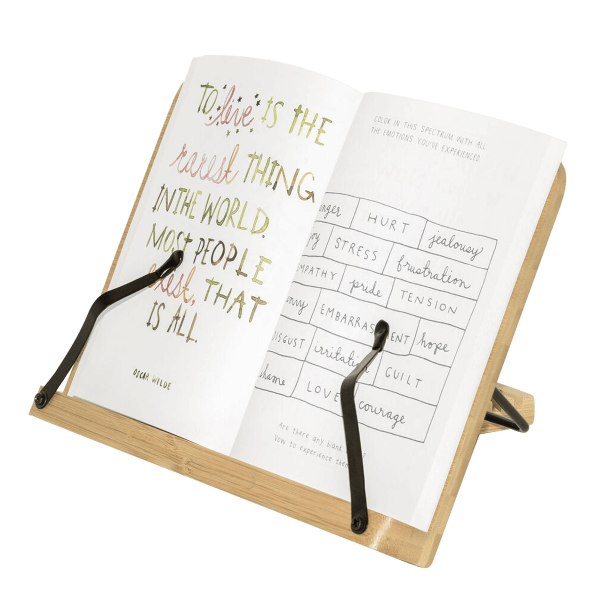 TO live IS THE
rarest THING
IN THE WORLD.
MOST PEOPLE
exist, THAT
IS ALL.
OSCAR WILDE
COLOR IN THIS SPECTRUM WITH ALL
THE EMOTIONS YOU'VE EXPERIENCED
HURT jealousy
STRESS frustration
pride TENSION
EMBARRAS ENT hope
irritation GUILT
LOVE courage
Are there any blank
How to experience them